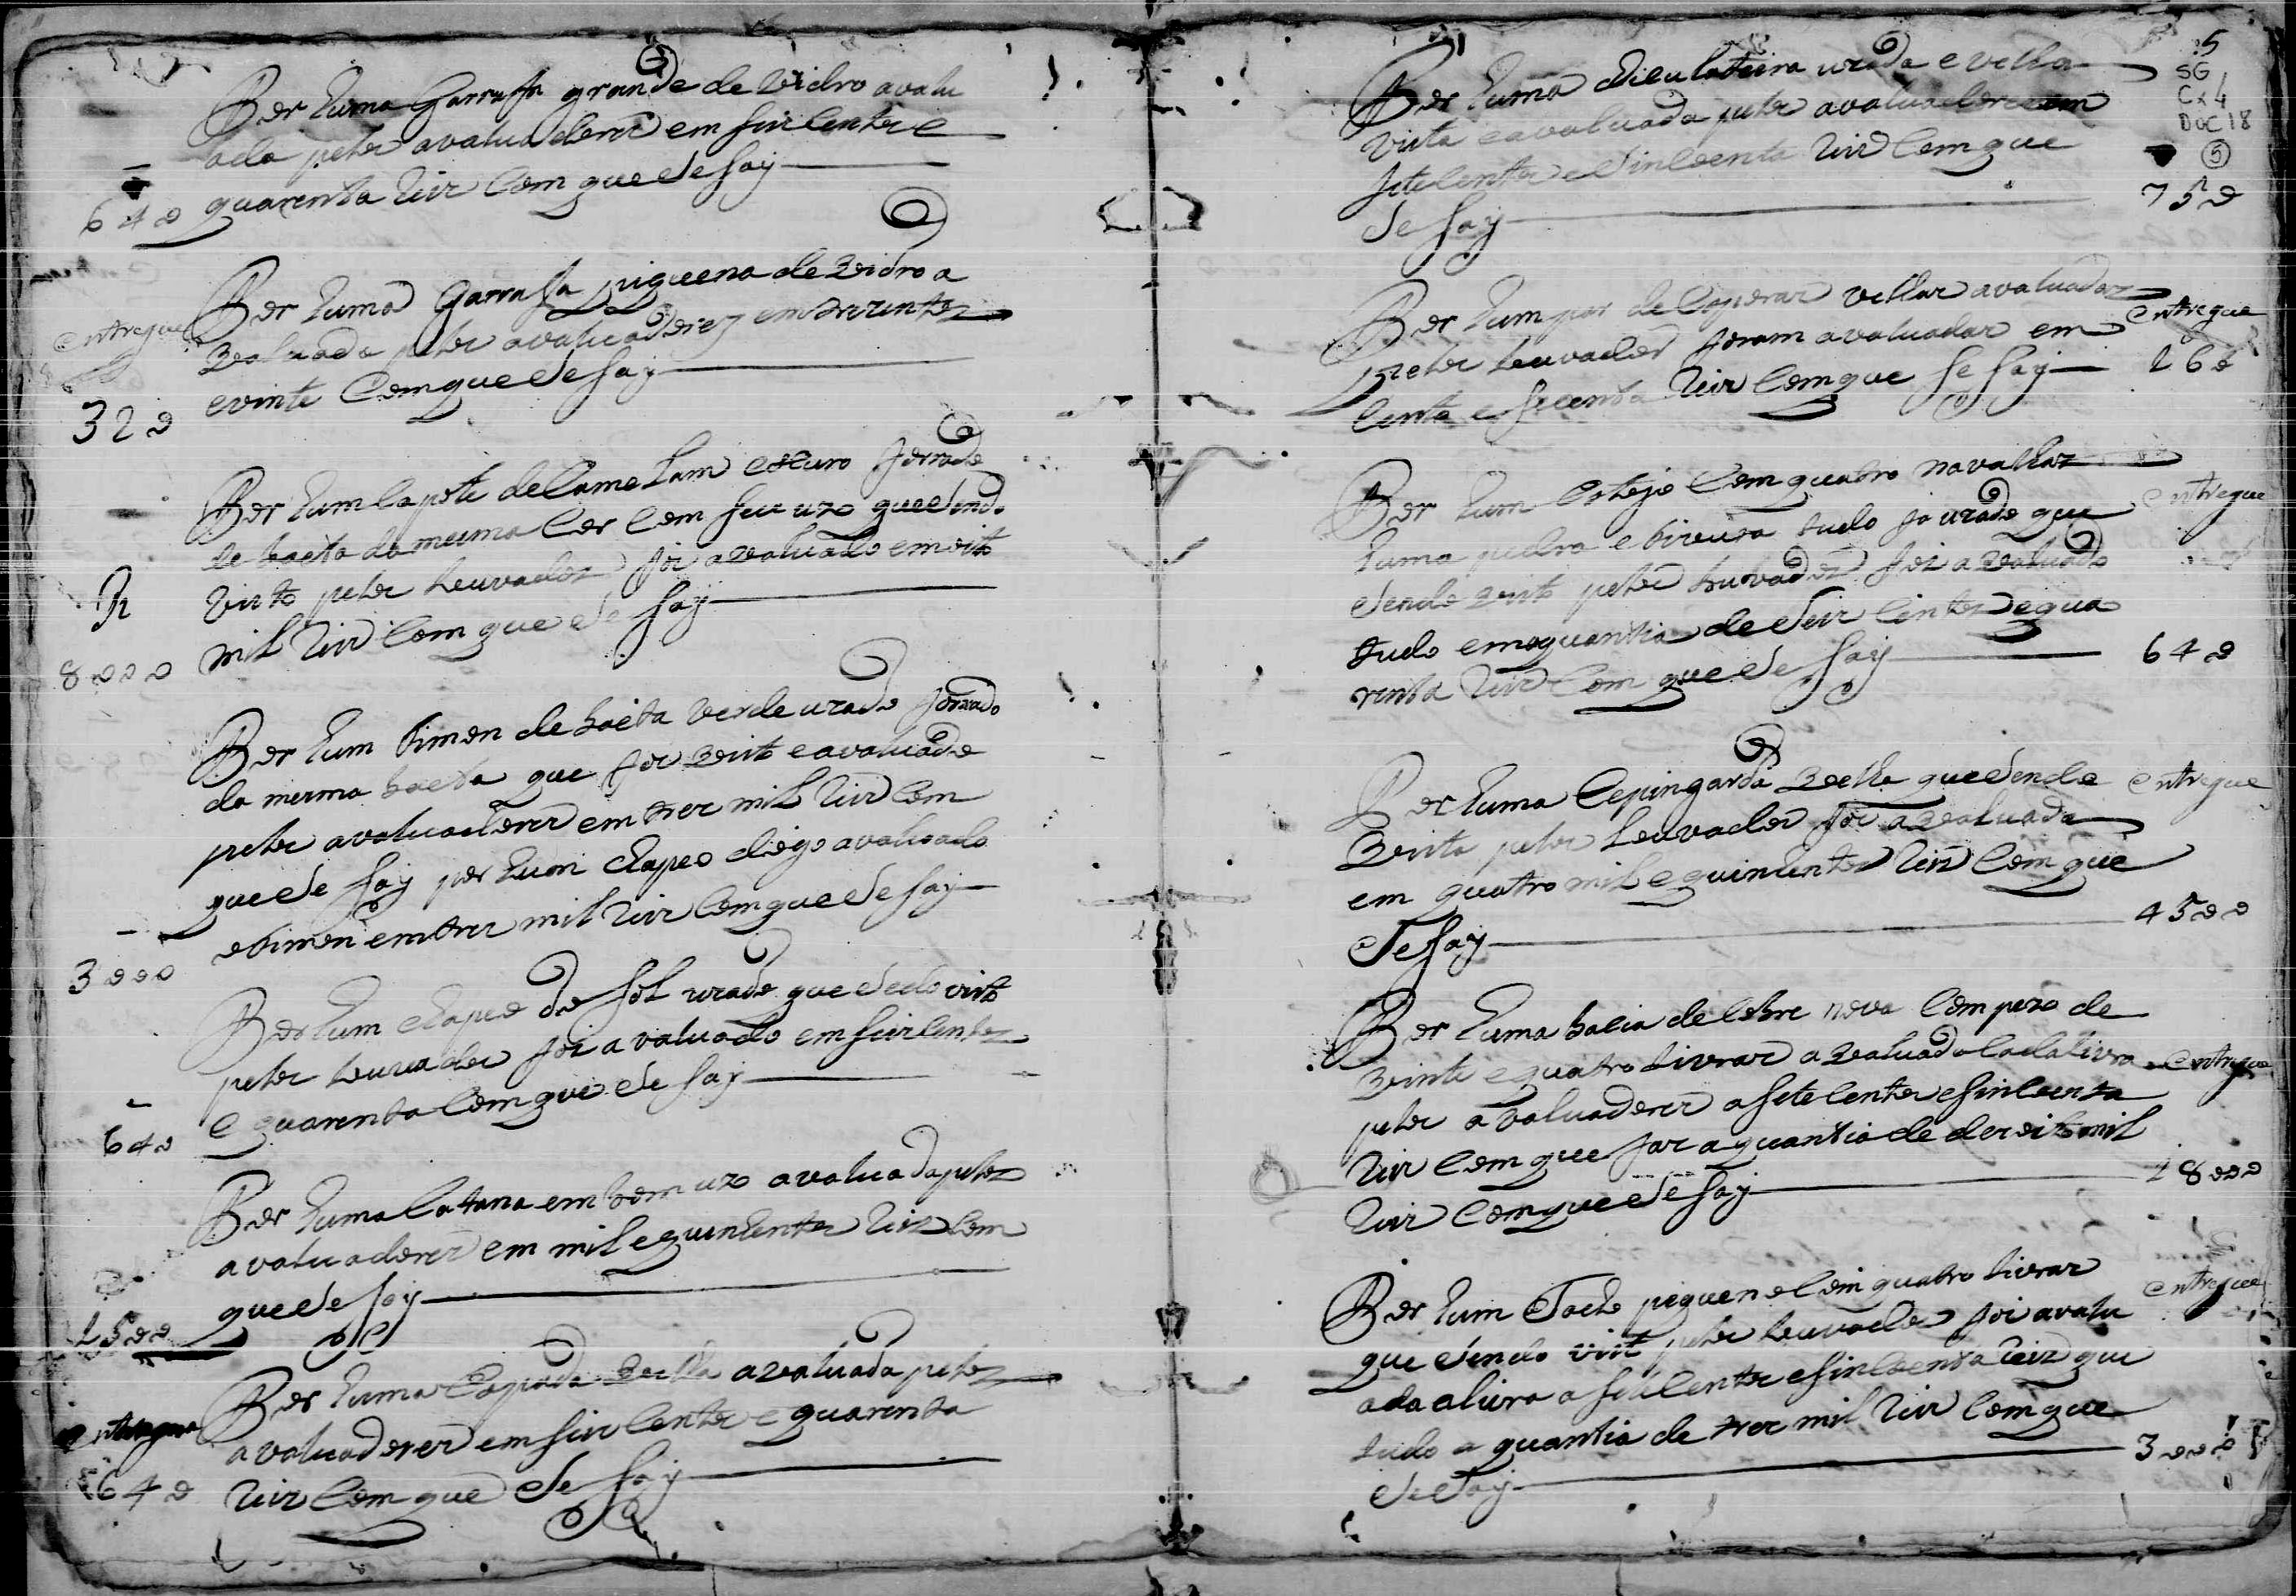 Por huma Garrafa grande de Vidro avalu
ada pelos avaluadores em seis centos e
quarenta Reis com que se say
640
Por huma Garrafa piquena de vidro a
valuada pelos avaluadores em trezentos
e vinte com que se say
entregue
320
Por hum Capote de Camelam escuro forrado
de baeta da mesma Cor com seu uzo que sendo
visto pelos Louvados foi avaluado em oito
mil Reis com que se say
8000
Por hum timon de baeta verde uzado forrado
da mesma baeta que foi visto e avaluado
pelos avaluadores em tres mil Reis com
que se say por hum chapeo digo avaluado
o timon em tres mil Reis com que se say
3000
Por hum chapeo de sol uzado que sedo visto
pelos Louvados foi avaluado em seis centos
e quarenta com que se say
640
Por huma Catana em bom uzo avaluada pelos
avaluadores em mil e quinhentos Reis com
que se say
1500
Por huma Espada velha avaluada pelos
avaluadores em seis centos e quarenta
Reis com que se say
entregue
640
5
SG
Cx 4
Doc 18
5
Por huma chicolateira uzada e velha
vista e avaluada pelos avaluadores em
sete centos e sincoenta Reis com que
se say
750
Por hum par de Esporas velhas avaluadas
pelos Louvados foram avaluadas em
cento e secenta Reis com que se say
entregue
160
Por hum Estojo com quatro navalhas
huma pedra e tizoura tudo ja uzado que
sendo visto pelos Louvados foi avaluado
tudo em a quantia de seis centos e qua
renta Reis com que se say
entregue
640
Por huma Espingarda velha que sendo
vista pelos Louvados foi avaluada
em quatro mil e quinhentos Reis com que
se say
entregue
4500
Por huma bacia de Cobre nova com pezo de
vinte e quatro Livras avaluada cada livra
pelos avaluadores a sete centos e sincoenta
Reis com que faz a quantia de dezoito mil
Reis com que se say
entregue
18000
Por hum Tacho piqueno com quatro livras
que sendo visto pelos Louvados foi avalu
ado a livra a sete centos e sincoenta Reis que
tudo a quantia de tres mil Reis com que
se say
entregue
3000